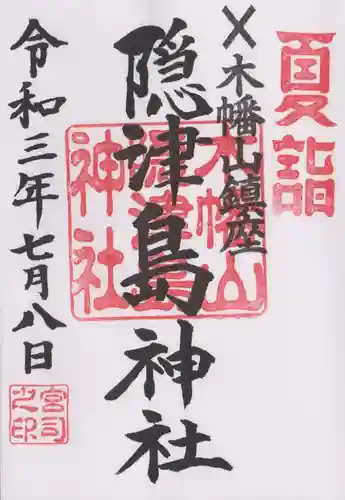 夏詣
〆木幡山鎮座
隠津島神社
木幡山
隠津島
神社
令和三年七月八日
宮司
之印